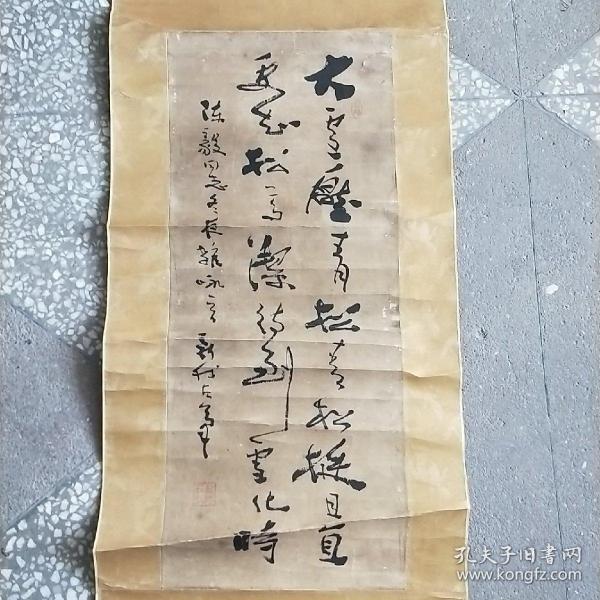 大雪壓青松青松挺且直
要知松高潔待到雪化時
陈毅同志冬夜雜咏之一
孔夫子旧书网
www.kongfz.com